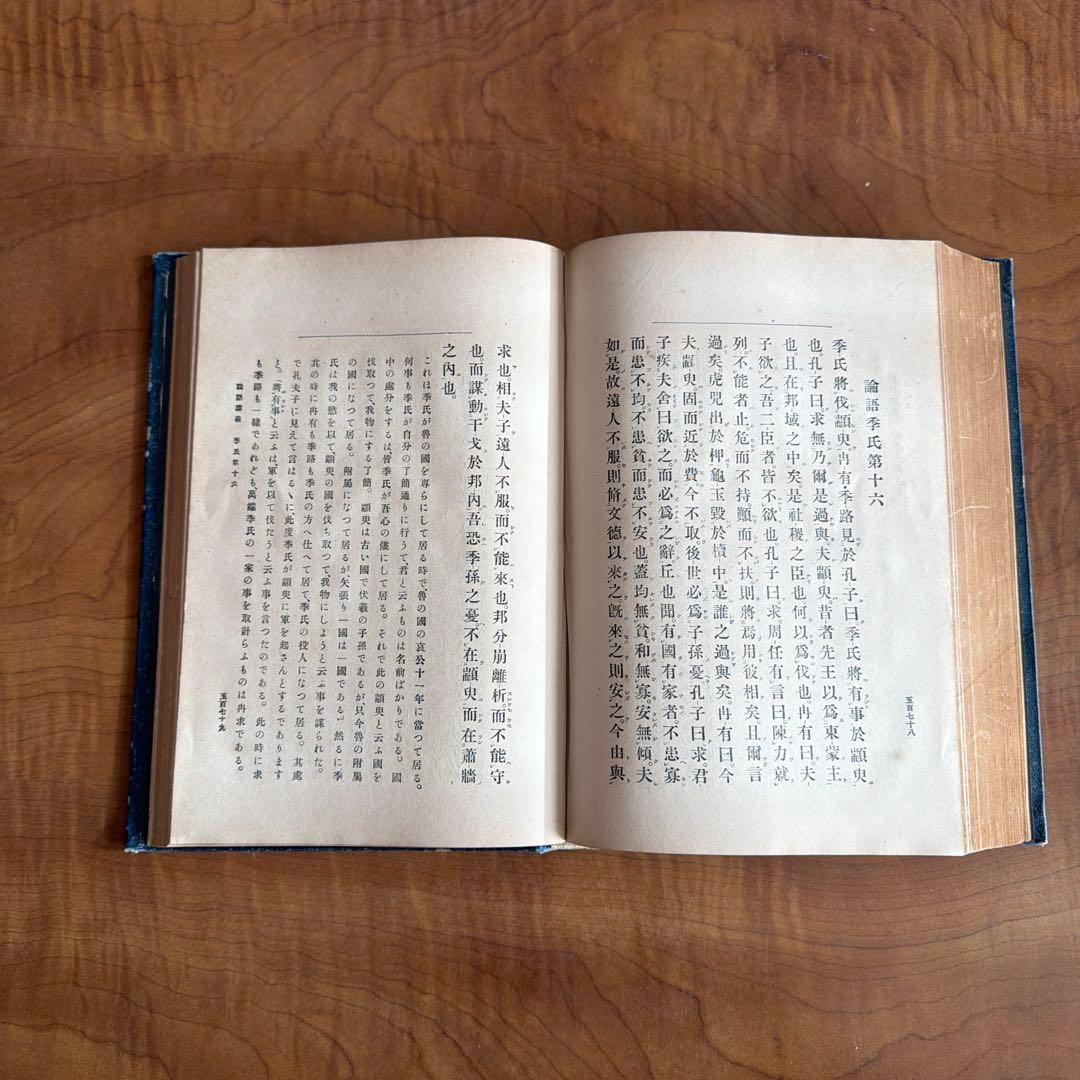 論語季氏第十六
季氏將伐顓臾。冉有・季路見於孔子曰。季氏將有事於顓臾
也。孔子曰。求無乃爾是過與。夫顓臾。昔者先王以爲東蒙主
也。且在邦域之中矣。是社稷之臣也。何以爲伐也。冉有曰。夫
子欲之。吾二臣者。皆不欲也。孔子曰。求。周任有言曰。陳力就
列。不能者止。危而不持。顚而不扶。則將焉用彼相矣。且爾言
過矣。虎兕出於柙。龜玉毀於櫝中。是誰之過與矣。冉有曰。今
夫顓臾。固而近於費。今不取。後世必爲子孫憂。孔子曰。求。君
子疾夫舍曰欲之。而必爲之辭。丘也聞。有國有家者。不患寡
而患不均。不患貧而患不安也。蓋均無貧。和無寡。安無傾。夫
如是。故遠人不服。則脩文德以來之。旣來之。則安之。今由與
五百七十八
求也。相夫子。遠人不服。而不能來也。邦分崩離析。而不能守
也。而謀動干戈於邦內。吾恐季孫之憂。不在顓臾。而在蕭牆
之內也。
これは季氏が魯の國を專らにして居る時で魯の國の哀公十一年に當つて居る。
何事も季氏が自分の了簡通りに行うて、君と云ふものは名前ばかりである。國
中の處分をするは、皆季氏が吾心の儘にして居る。それで此の顓臾と云ふ國を
伐取つて、我物にする了簡。顓臾は古い國で伏羲の子孫であるが只今魯の附屬
の國になつて居る。附屬になつて居るが矢張り一國は一國である。然るに季
氏は我の慾を以て、顓臾の國を伐ち取つて、我物にしようと云ふ事を謀られた。
其の時に冉有も季路も季氏の方へ仕へて居て、季氏の役人になつて居る。其處
で孔夫子に見えて言はるゝに此度季氏が顓臾に軍を起さんとするであります
と。『將有事』と云ふは、軍を以て伐たうと云ふ事を言つたのである。此の時に求
も季路も一緒であれども、萬端季氏の一家の事を取計らふものは冉求である。
論語講義　季氏第十六
五百七十九